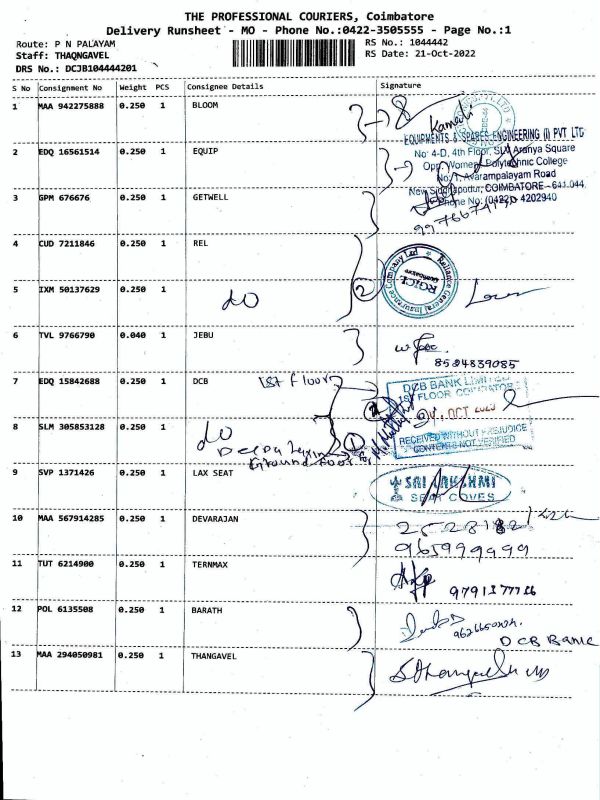 THE PROFESSIONAL COURIERS, Coimbatore
Delivery Runsheet - MO - Phone No.:0422-3505555 - Page No.:1
Route: P N PALAYAM
RS No.: 1044442
Staff: THAQNGAVEL
RS Date: 21-Oct-2022
DRS No.: DCJB104444201
S No Consignment No Weight PCS Consignee Details Signature
1 MAA 942275888 0.250 1 BLOOM
Kamali
EQUIPMENTS & SPARES ENGINEERING (I) PVT LTD
2 EDQ 16561514 0.250 1 EQUIP
No: 4-D, 4th Floor, SLV Aranya Square
Opp. Women Polytechnic College
No. 1, Avarampalayam Road
New Siddhapudur, COIMBATORE - 641 044
Phone No: (0422) 4202940
3 GPM 676676 0.250 1 GETWELL
4 CUD 7211846 0.250 1 REL
Reliance General Insurance Company Ltd
RGICL
2
5 IXM 50137629 0.250 1
do
6 TVL 9766790 0.040 1 JEBU
8524839085
7 EDQ 15842688 0.250 1 DCB
1st floor
DCB BANK LIMITED
1ST FLOOR COIMBATORE
OCT
RECEIVED WITHOUT PREJUDICE
CONTENTS NOT VERIFIED
8 SLM 305853128 0.250 1
do
1
Ground floor
9 SVP 1371426 0.250 1 LAX SEAT
SRI LAKSHMI
SEAT COVES
10 MAA 567914285 0.250 1 DEVARAJAN
965999999
11 TUT 6214900 0.250 1 TERNMAX
12 POL 6135508 0.250 1 BARATH
DCB Bank
13 MAA 294050981 0.250 1 THANGAVEL